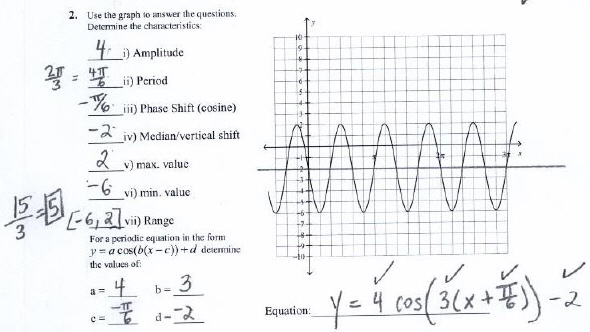 2. Use the graph to answer the questions.
Determine the characteristics:
4 i) Amplitude
2π/3 = 4π/6 ii) Period
-π/6 iii) Phase Shift (cosine)
-2 iv) Median/vertical shift
2 v) max. value
-6 vi) min. value
15/3 = 5 [-6, 2] vii) Range
For a periodic equation in the form
y = a cos(b(x – c)) + d determine
the values of:
a = 4 b = 3
c = -π/6 d = -2
Equation: y = 4 cos(3(x + π/6)) - 2
y
10
x